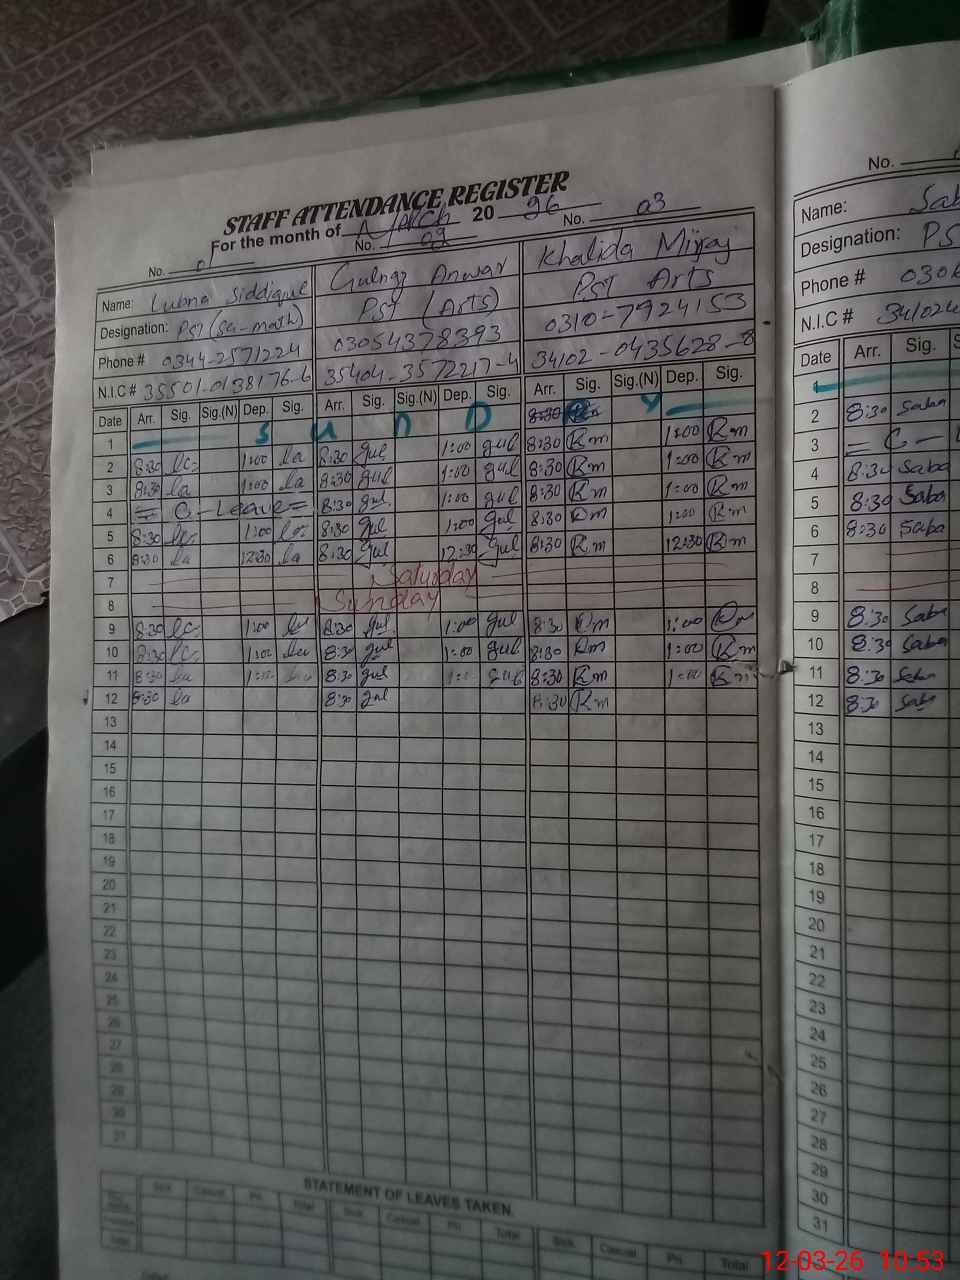 STAFF ATTENDANCE REGISTER
For the month of March 20 26
No. 01 No. 02 No. 03
Name: Lubna Siddique Gulnaz Anwar Khalida Mirraj
Designation: PST (Sci-math) PST (Arts) PST Arts
Phone # 0344-2571224 03054378393 0310-7924153
N.I.C # 35501-0138176-6 35404-3572217-4 34102-0435628-8
Date Arr. Sig. Sig.(N) Dep. Sig. Arr. Sig. Sig.(N) Dep. Sig. Arr. Sig. Sig.(N) Dep. Sig.
1 S U N D Y
2 8:30 la 1:00 la 8:30 gul 1:00 gul 8:30 Km 1:00 Km
3 8:30 la 1:00 la 8:30 gul 1:00 gul 8:30 Km 1:00 Km
4 = C-Leave = 8:30 gul 1:00 gul 8:30 Km 1:00 Km
5 8:30 la 1:00 la 8:30 gul 1:00 gul 8:30 Km 1:00 Km
6 8:30 la 12:30 la 8:30 gul 12:30 gul 8:30 Km 12:30 Km
7 Saturday
8 Sunday
9 8:30 la 1:00 la 8:30 gul 1:00 gul 8:30 Km 1:00 Km
10 8:30 la 1:00 la 8:30 gul 1:00 gul 8:30 Km 1:00 Km
11 8:30 la 1:00 8:30 gul 1:00 gul 8:30 Km 1:00 Km
12 8:30 la 8:30 gul 8:30 Km
13
14
15
16
17
18
19
20
21
22
23
24
25
26
27
28
29
30
31
STATEMENT OF LEAVES TAKEN.
Sick Casual Pri. Total Sick Casual Pri. Total Sick Casual Pri. Total
No.
Name: Sab
Designation: PS
Phone # 030
N.I.C # 341024
Date Arr. Sig.
2 8:30 Saba
3 = C -
4 8:30 Saba
5 8:30 Saba
6 8:30 Saba
7
8
9 8:30 Saba
10 8:30 Saba
11 8:30 Saba
12 8:30 Saba
13
14
15
16
17
18
19
20
21
22
23
24
25
26
27
28
29
30
31
12-03-26 10:53